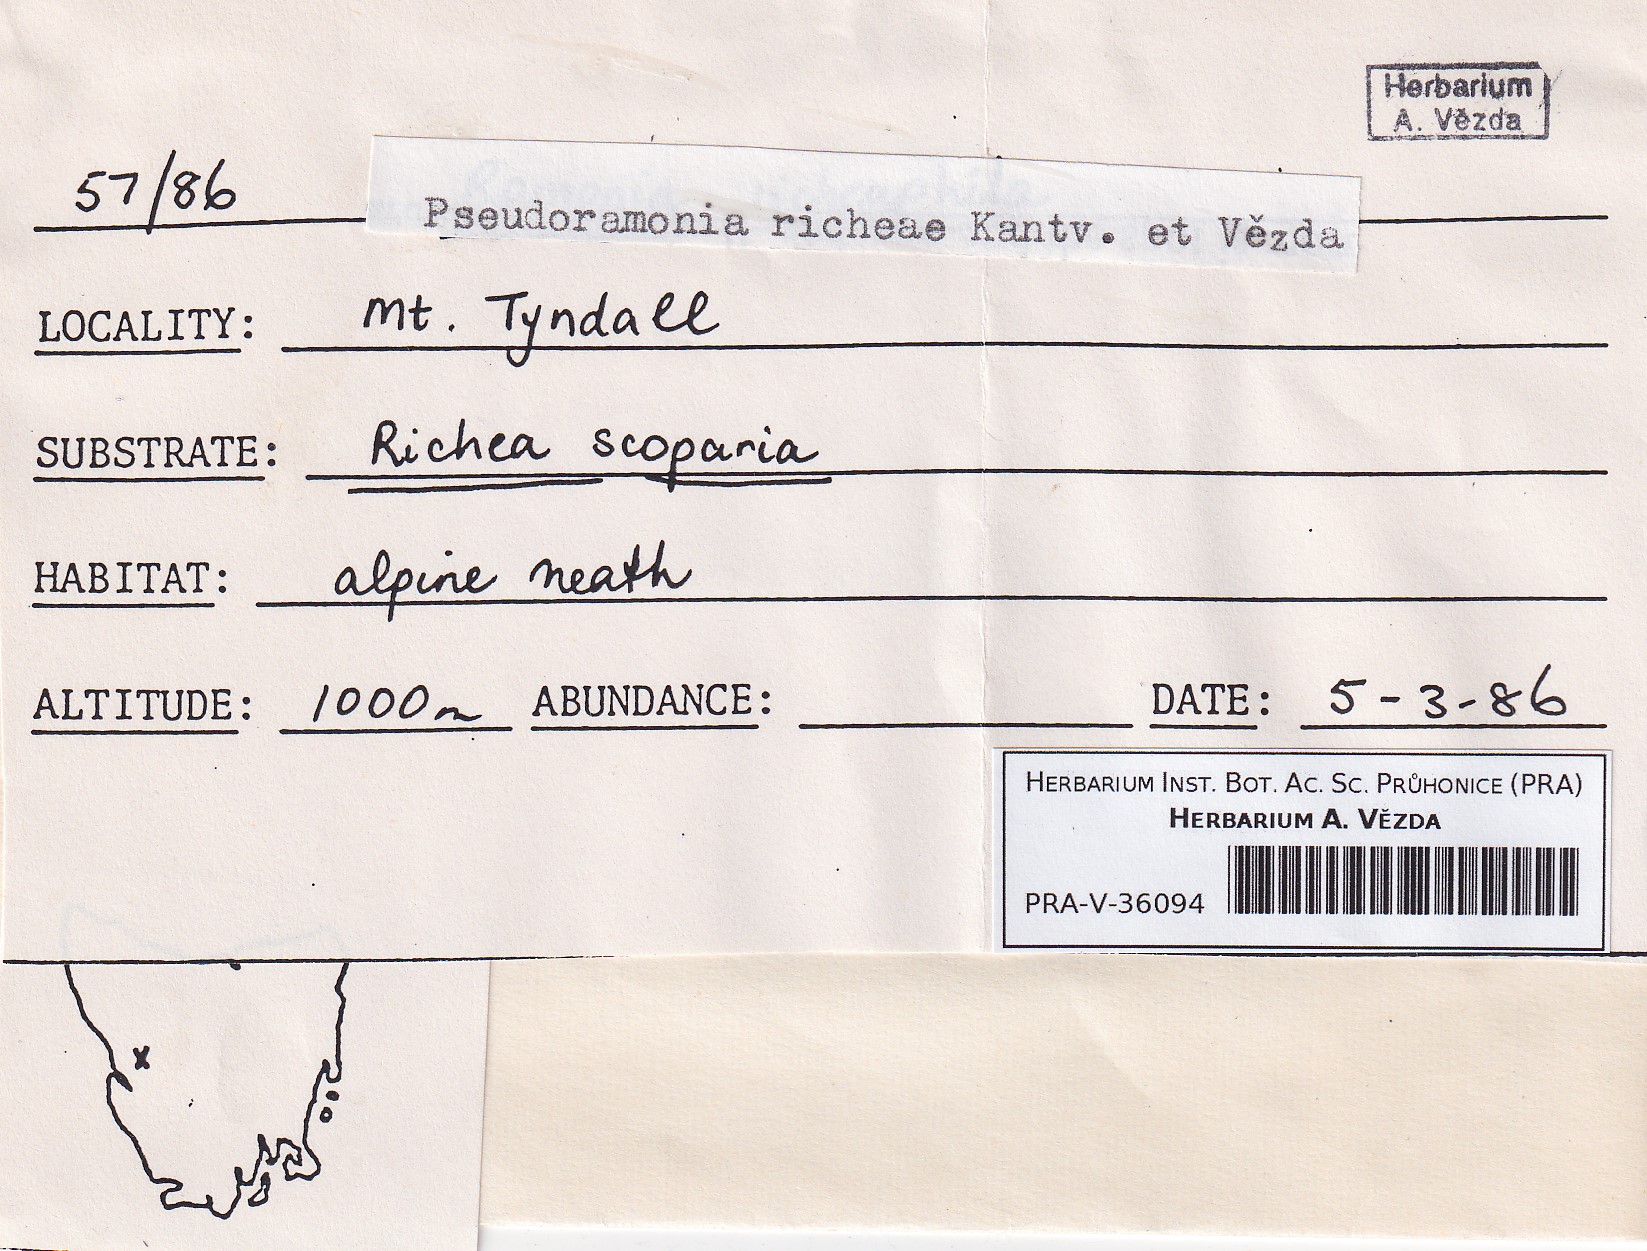 Herbarium
A. Vězda
57/86 Pseudoramonia richeae Kantv. et Vězda
LOCALITY: Mt. Tyndall
SUBSTRATE: Richea scoparia
HABITAT: alpine heath
ALTITUDE: 1000m ABUNDANCE: DATE: 5-3-86
HERBARIUM INST. BOT. AC. SC. PRŮHONICE (PRA)
HERBARIUM A. VĚZDA
PRA-V-36094
x